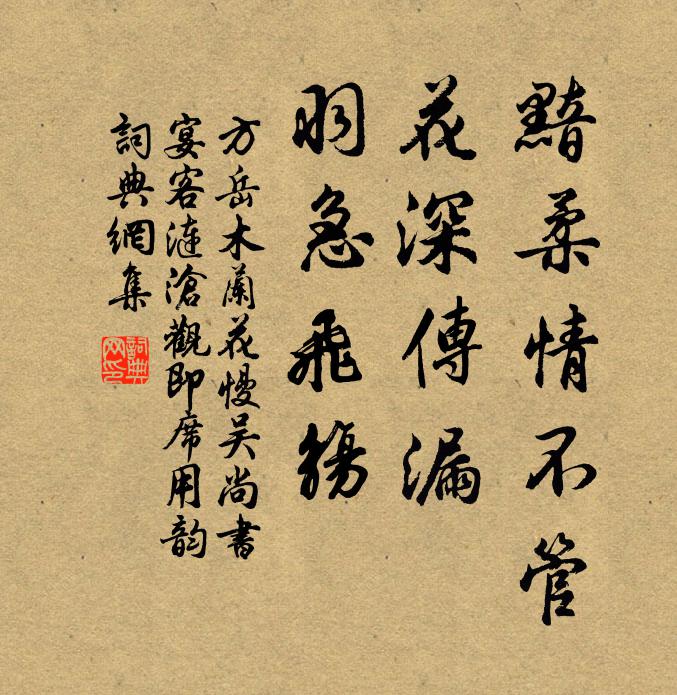 黯柔情不管
花深傳漏
羽急飛觴
方岳木蘭花慢吴尚書
宴客漣滄觀即席用韵
詞典網集
詞典
网印